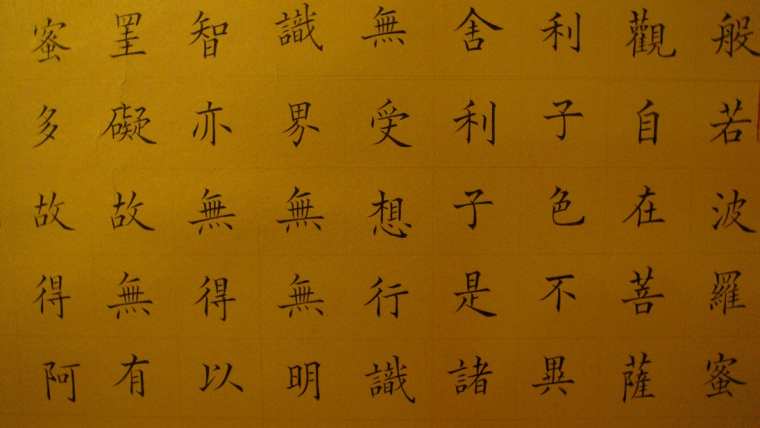 般若波羅蜜
觀自在菩薩
利子色不異
舍利子是諸
無受想行識
識界無無明
智亦無得以
罣礙故無有
蜜多故得阿